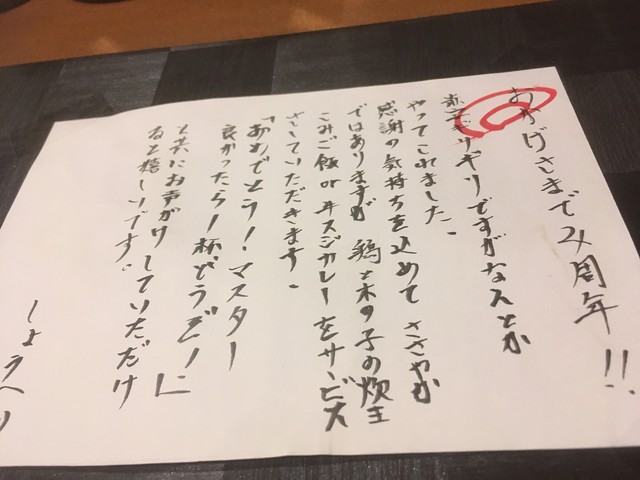 おかげさまで2周年!!
赤字ギリギリですがなんとか
やってこれました。
感謝の気持ちを込めて ささやか
ではありますが 鶏と木の子の炊き
こみご飯or牛スジカレーをサービス
さしていただきます。
「おめでとう!マスター
良かったら1杯どうぞ!」
と共にお声がけしていただけ
ると嬉しいです。
しょうへい